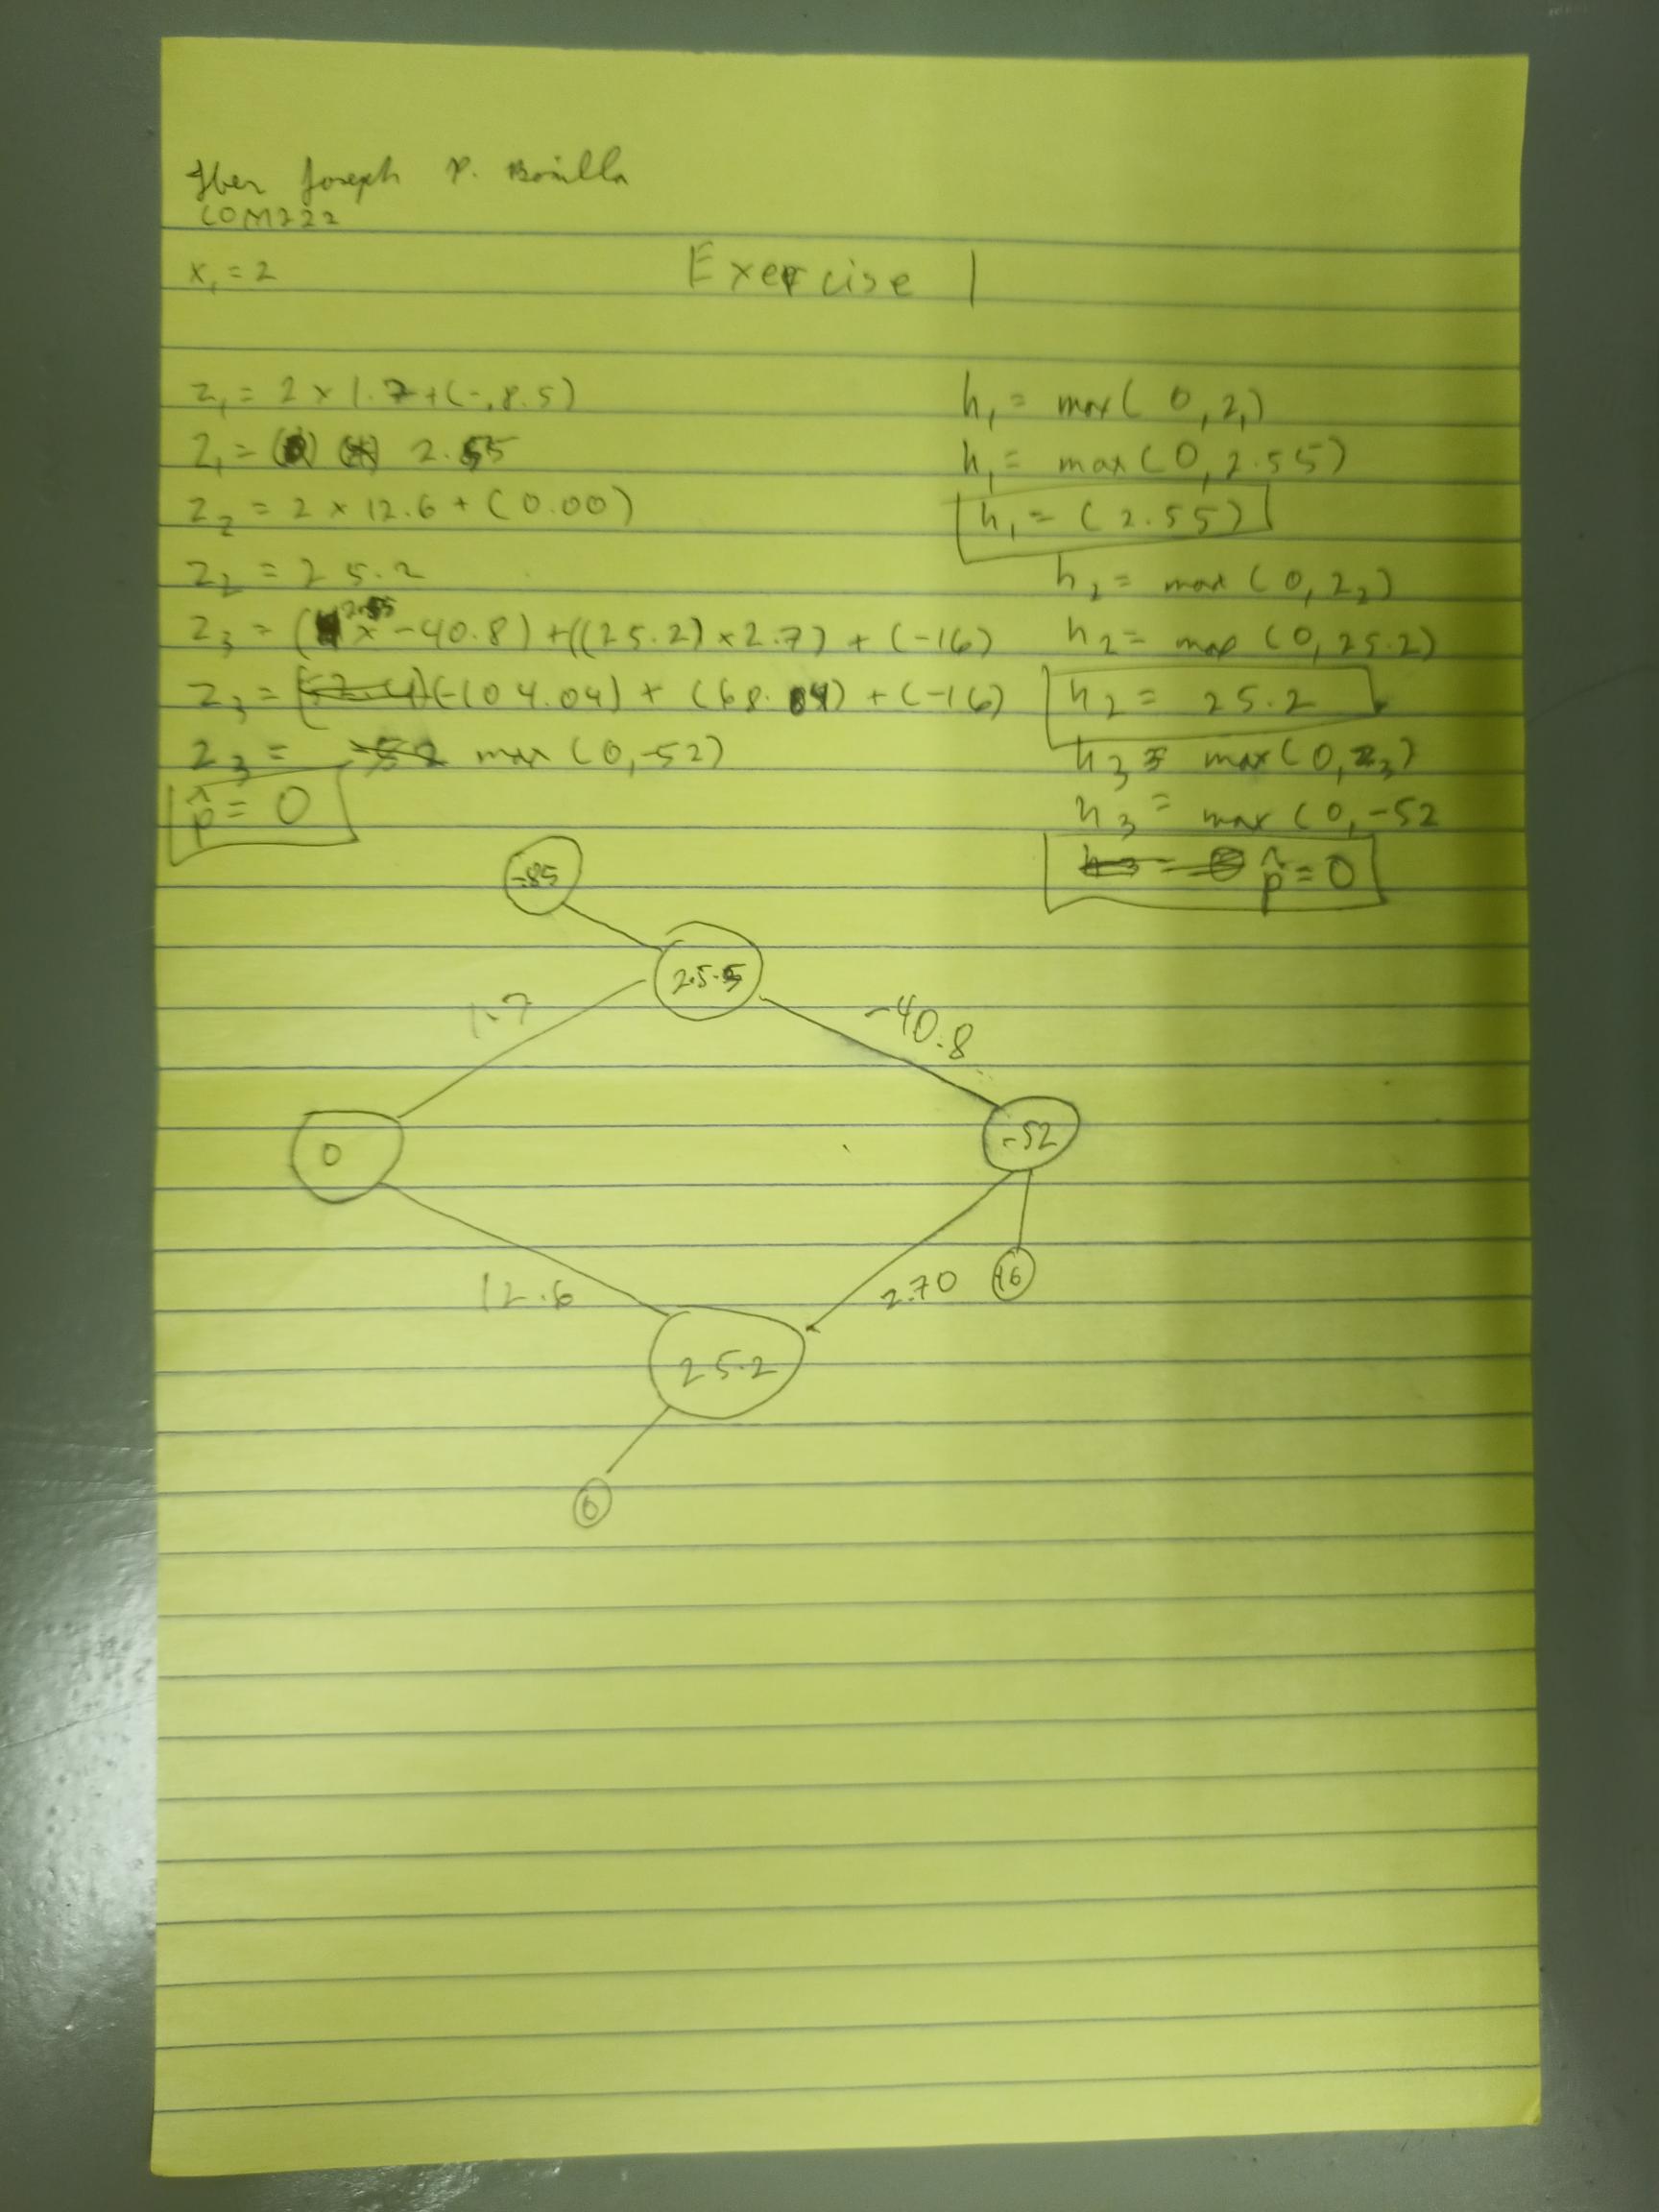 Joseph P. Bonilla
COM222
x₁ = 2
Exercise 1
z₁ = 2 x 1.7 + (-.8.5)
z₁ = 2.55
z₂ = 2 x 12.6 + (0.00)
z₂ = 25.2
z₃ = (2.55 x -40.8) + ((25.2) x 2.7) + (-16)
z₃ = (-104.04) + (68.04) + (-16)
z₃ = max (0, -52)
p̂ = 0
h₁ = max ( 0, z₁)
h₁ = max (0, 2.55)
h₁ = (2.55)
h₂ = max (0, z₂)
h₂ = max (0, 25.2)
h₂ = 25.2
h₃ = max (0, z₃)
h₃ = max (0, -52
p̂ = 0
-.85
2.5.5
1.7
-40.8
0
-52
12.6
2.70
25.2
0